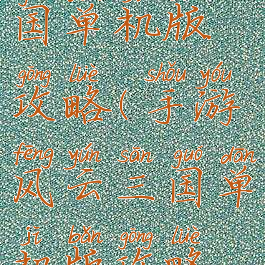 国单机版
gōng lüè shǒu yóu
攻略(手游
fēng yún sān guó dān
风云三国单
jī bǎn gōng lüè
机版攻略